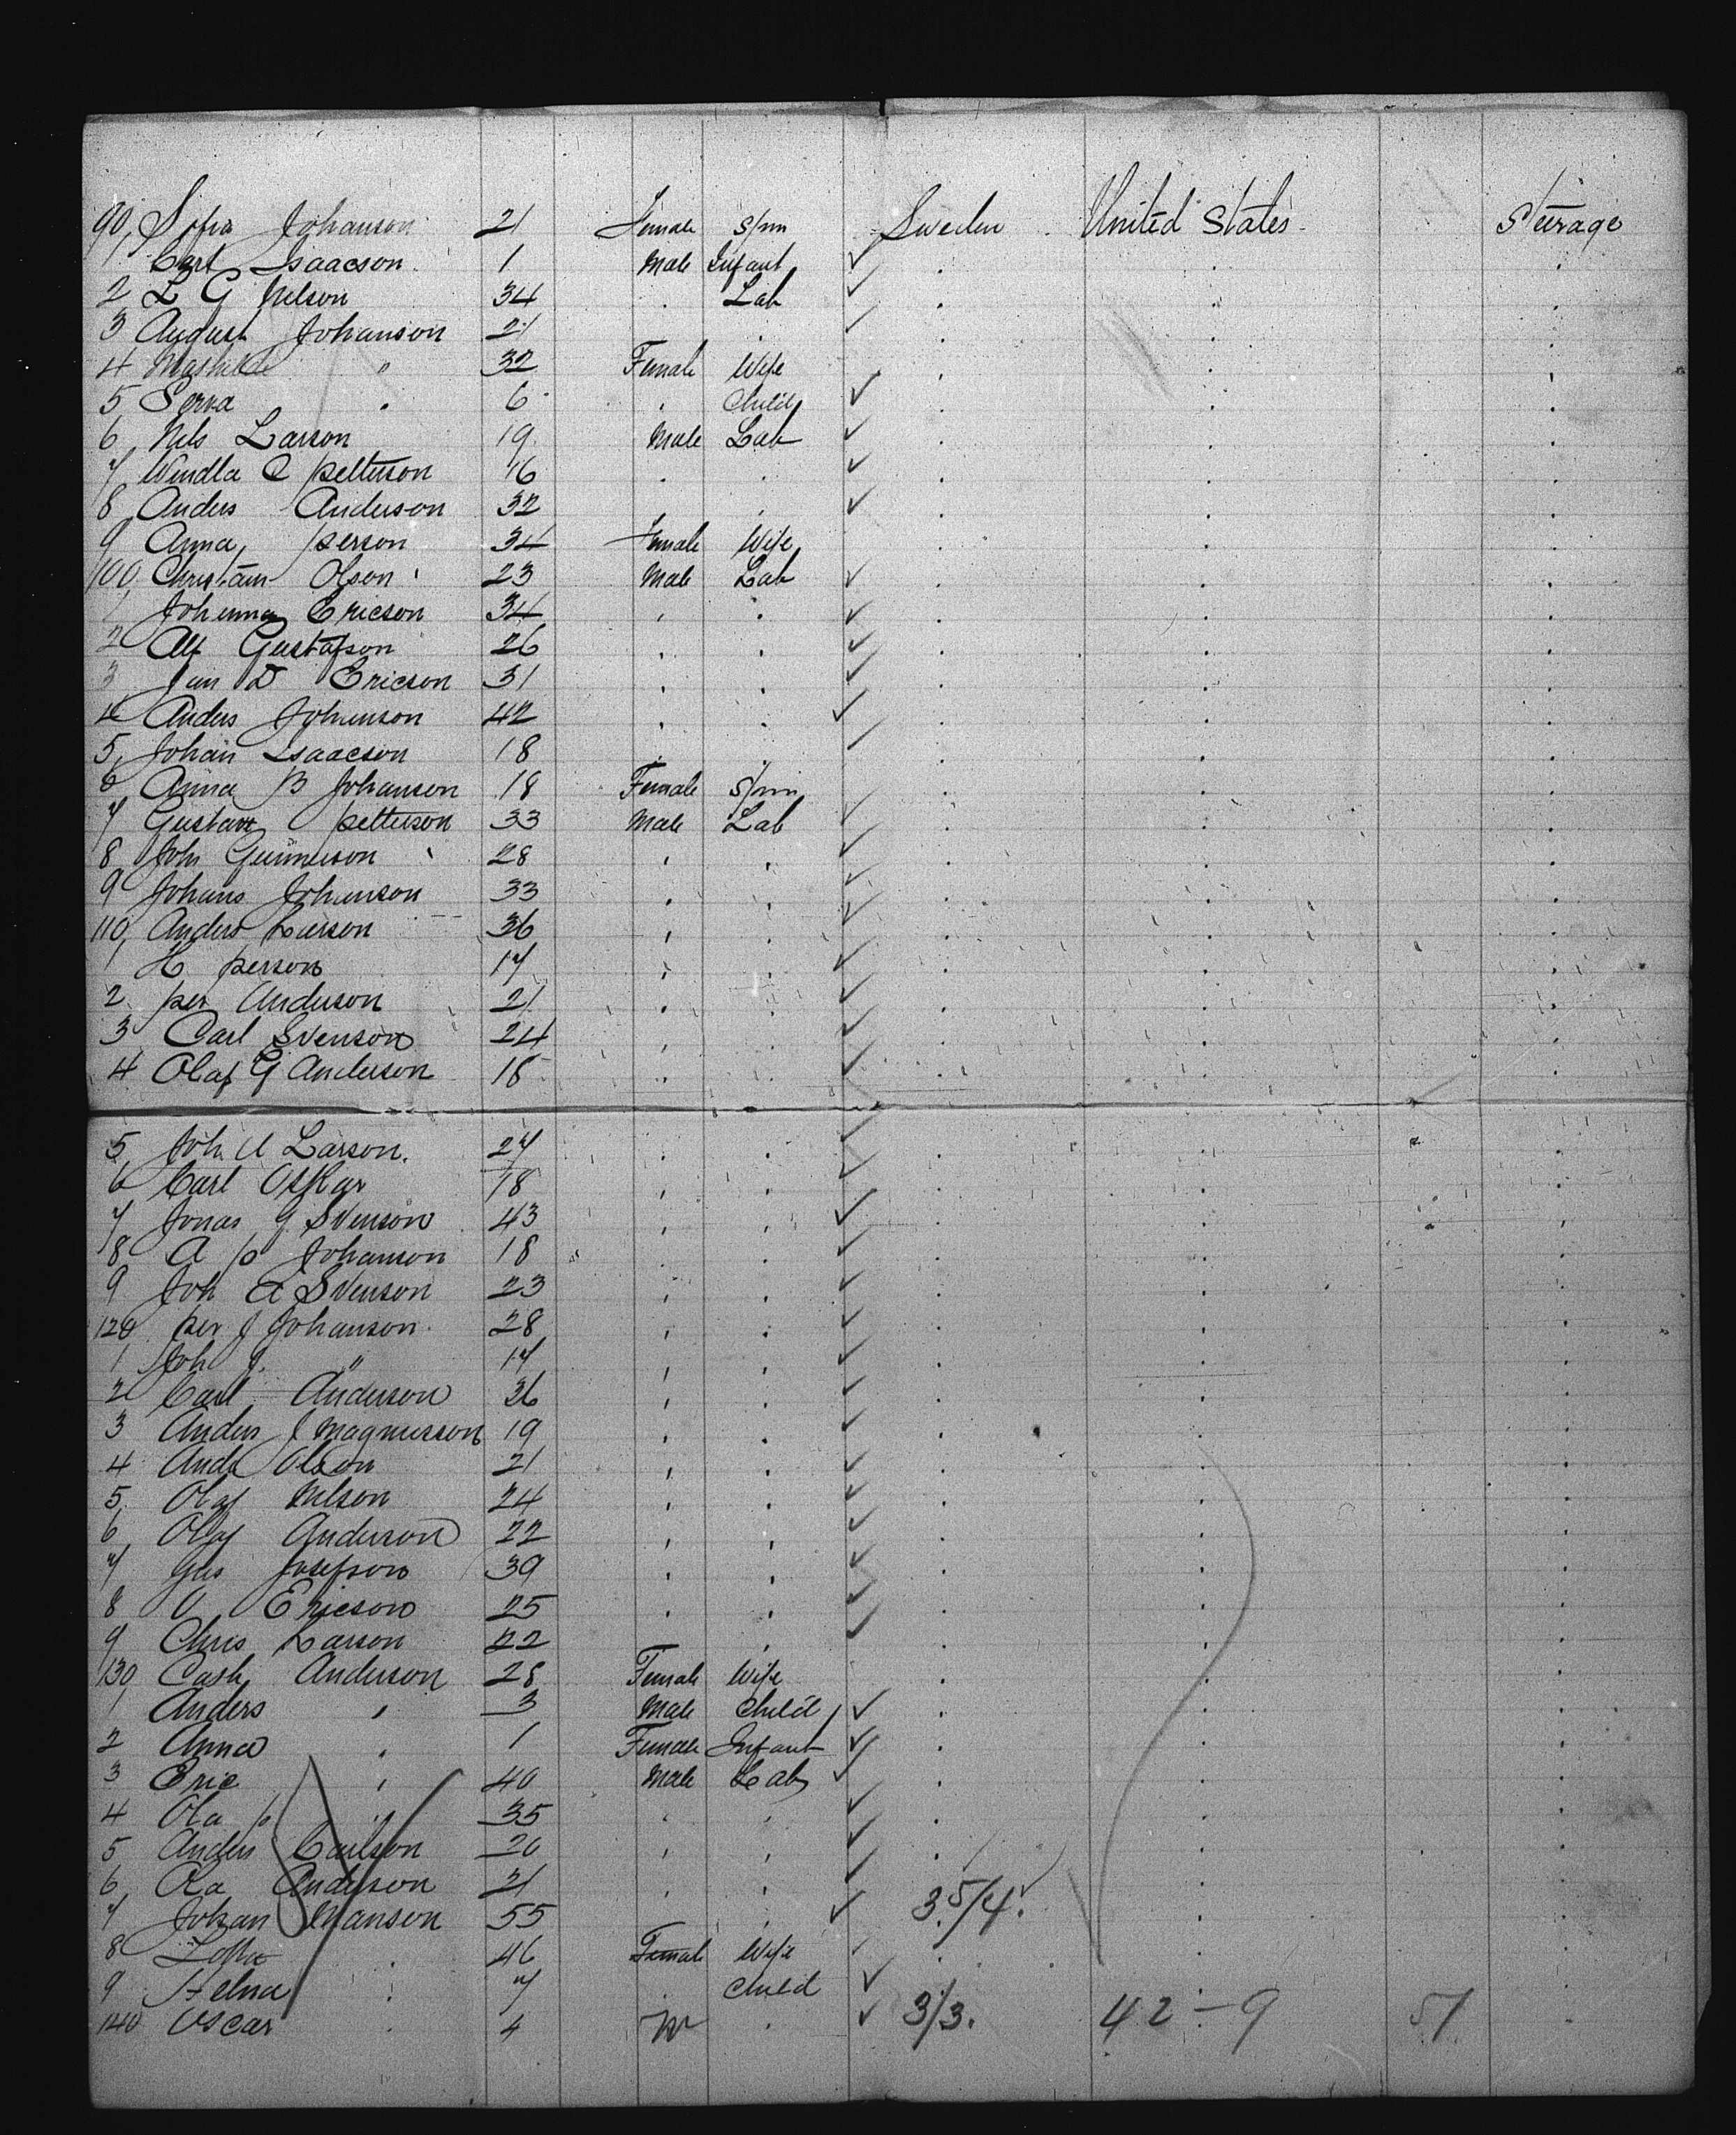 90, Sofia Johanson 21 Female Spin Sweden United States Steerage
1 Carl Isaacson 1 Male Infant ✓ . . .
2 L G Nelson 34 . Lab ✓ . . .
3 August Johanson 21 . . ✓ . . .
4 Mathilde " 32 Female Wife . . .
5 " 6 . Child ✓ . . .
6, Nels Larson 19 Male Lab ✓ . . .
7 Wendla C Petterson 16 . . ✓ . . .
8, Anders Anderson 32 . . ✓ . . .
9 Anna Person 34 Female Wife . . .
100, Christain Olson 23 Male Lab ✓ . . .
1 Johanna Ericson 34 . . ✓ . . .
2 Alf Gustafson 26 . . ✓ . . .
3 Jan D Ericson 31 . . ✓ . . .
4 Anders Johanson 42 . . ✓ . . .
5, Johan Isaacson 18 . . ✓ . . .
6 Anna B Johanson 18 Female Spin . . .
7 Gustav Petterson 33 Male Lab ✓ . . .
8 Joh Gunnerson 28 . . ✓ . . .
9 Johans Johanson 33 . . ✓ . . .
110, Anders Larson 36 . . ✓ . . .
1 H Person 17 . . ✓ . . .
2 Per Anderson 21 . . ✓ . . .
3 Carl Svenson 24 . . ✓ . . .
4 Olaf G Anderson 18 . . ✓ . . .
5, Joh A Larson. 27 . . ✓ . . .
6 Carl Oskar 18 . . ✓ . . .
7 Jonas G Svenson 43 . . ✓ . . .
8 A P Johanson 18 . . ✓ . . .
9 Joh A Svenson 23 . . ✓ . . .
120 Per J Johanson 28 . . ✓ . . .
1 Joh J. " 17 . . ✓ . . .
2 Carl Anderson 36 . . ✓ . . .
3 Anders J Magnusson 19 . . ✓ . . .
4 Olson 21 . . ✓ . . .
5, Olaf Nelson 24 . . ✓ . . .
6, Olaf Anderson 22 . . ✓ . . .
7 Gus Josefson 39 . . ✓ . . .
8 O Ericson 25 . . ✓ . . .
9 Chris Larson 22 . . ✓ . . .
130, Anderson 28 Female Wife . . .
1 Anders " 3 Male Child ✓ . . .
2 Anna " 1 Female Infant ✓ . . .
3 Eric " 40 Male Lab ✓ . . .
4 Ola P " 35 . . ✓ . . .
5 Anders Carlson 20 . . ✓ . . .
6, Ola Anderson 21 . . ✓ . .
7 Johan Manson 55 . . ✓ 35/4. . .
8 . 46 Female Wife . . .
9 Helna . 7 . Child ✓ . . .
140 Oscar . 4 M . ✓ 3/3. 42-9 51 .